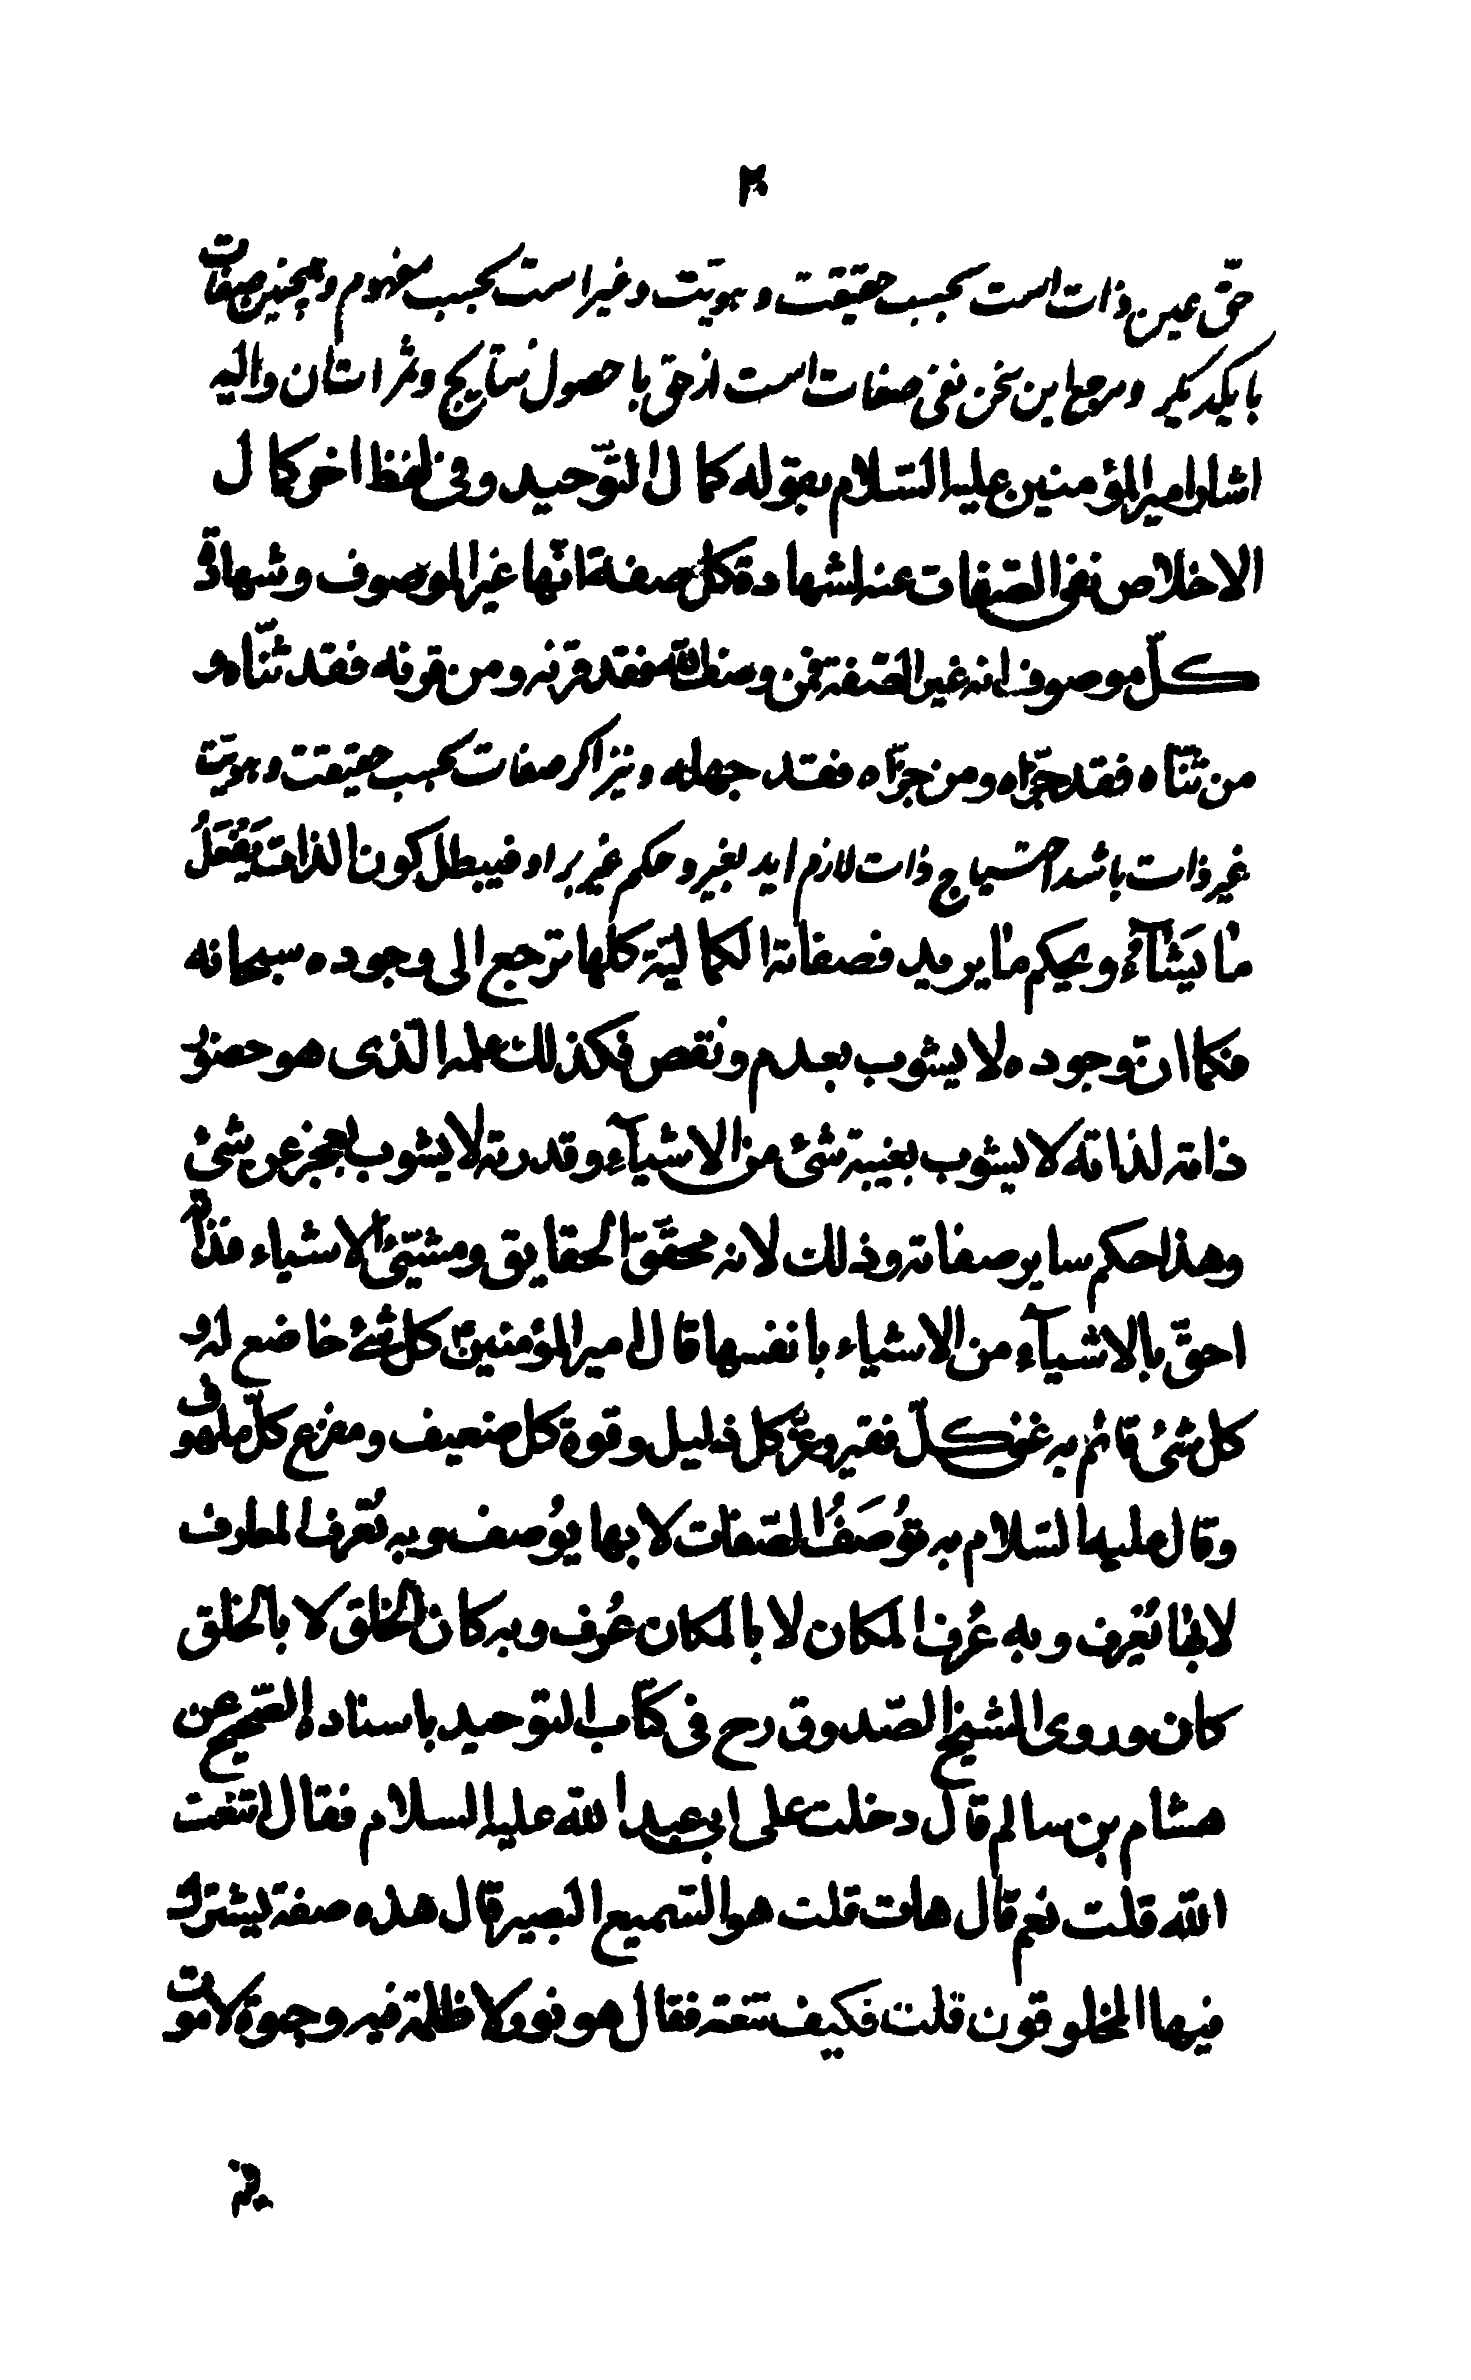 ۳
حق عین ذات است بحسب حقیقت و هویّت و غیر است بحسب مفهوم و همچنین صفات
با یکدیکر و مرجع این سخن نفی صفات است از حق با حصول نتایج و ثمرات ان و الیه
اشار امیر المؤمنین علیه السّلام بقوله کمال التّوحید و فی لفظ اخر کمال
الاخلاص نفی الصّفات عنه لشهادة کل صفة انّها غیر الموصوف و شهادة
کلّ موصوف انه غیر الصّفة فمن وصف الله فقد قرنه و من قرنه فقد ثنّاه و
من ثنّاه فقد جزّاه و من جزّاه فقد جهله و نیز اکر صفات بحسب حقیقت و هویّت
غیر ذات باشد احتیاج ذات لازم اید بغیر و حکم غیر بر او فیبطل کون الذات یَفْعَلُ
ما یَشآءُ و یحکم ما یرید فصفاته الکمالیّة کلها ترجع الی وجوده سبحانه
فکما انّ وجوده لا یشوب بعدم و نقص فکذلک علمه الّذی هو حضور
ذاته لذاته لا یشوب بغیبة شئ من الاشیآء و قدرته لا یشوب بعجز عن شئ
و هذا حکم سایر صفاته و ذلک لانه محقّق الحقایق و مشیّئ الاشیاء فذاته
احقّ بالاشیآء من الاشیاء بانفسها قال امیر المؤمنین ع کل شئ خاضع له و
کل شئ قائم به غنی کلّ فقیر و عزّ کل ذلیل و قوة کل ضعیف و مفزع کلّ ملهوف
و قال علیه السّلام به تُوصَفُ الصّفات لا بها یُوصف و به تُعْرف المعارف
لا بها تُعْرف و به عُرف المکان لا بالمکان عُرف و به کان الخلق لا بالخلق
کان و روی الشیخ الصّدوق رح فی کتاب التوحید باسناده الصّحیح عن
هشام بن سالم قال دخلت علی ابی عبد الله علیه السلام فقال اتنعت
الله قلت نعم قال هات قلت هو السّمیع البصیر قال هذه صفة یشترک
فیها المخلوقون قلت فکیف تنعته فقال هو نور لا ظلمة فیه و حیوة لا موت
فیه